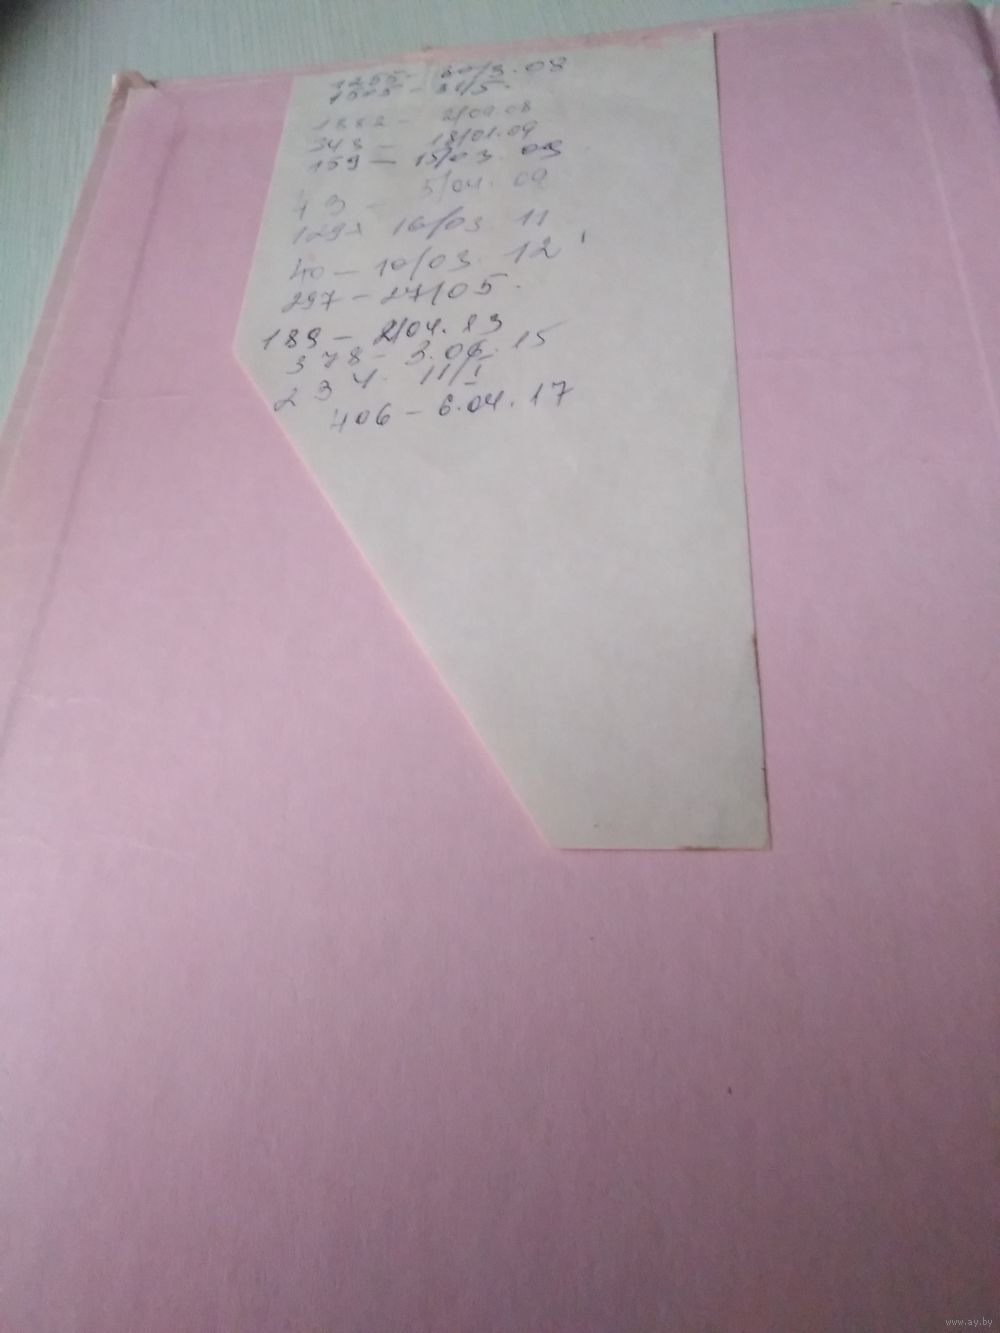 1255 - 30/3.08
1505 - 31/5.
1882 - 2/09.08
343 - 18/01.09
159 - 15/03. 09
43 - 5/04. 09
129 - 16/03. 11
40 - 10/03. 12
297 - 27/05.
189 - 2/04. 13
378 - 3.06. 15
234. 11/I
406 - 6.04.17
www.ay.by